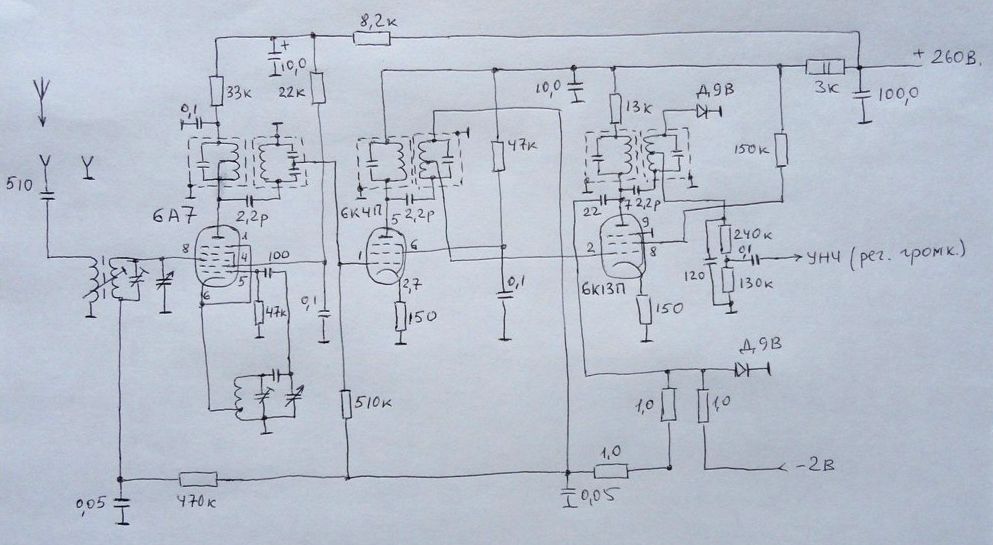 8,2к
+ 260В.
+
10,0
33к
22к
0,1
10,0
13к
Д9В
3к
100,0
47к
150к
510
6А7
2,2р
6К4П
5
2,2р
22
7
2,2р
9
8
1
4
5
6
100
1
6
2,7
2
8
6К13П
240к
0,1
УНЧ (рег. громк.)
120
130к
47к
0,1
150
0,1
150
Д9В
510к
1,0
1,0
1,0
-2В
0,05
470к
0,05